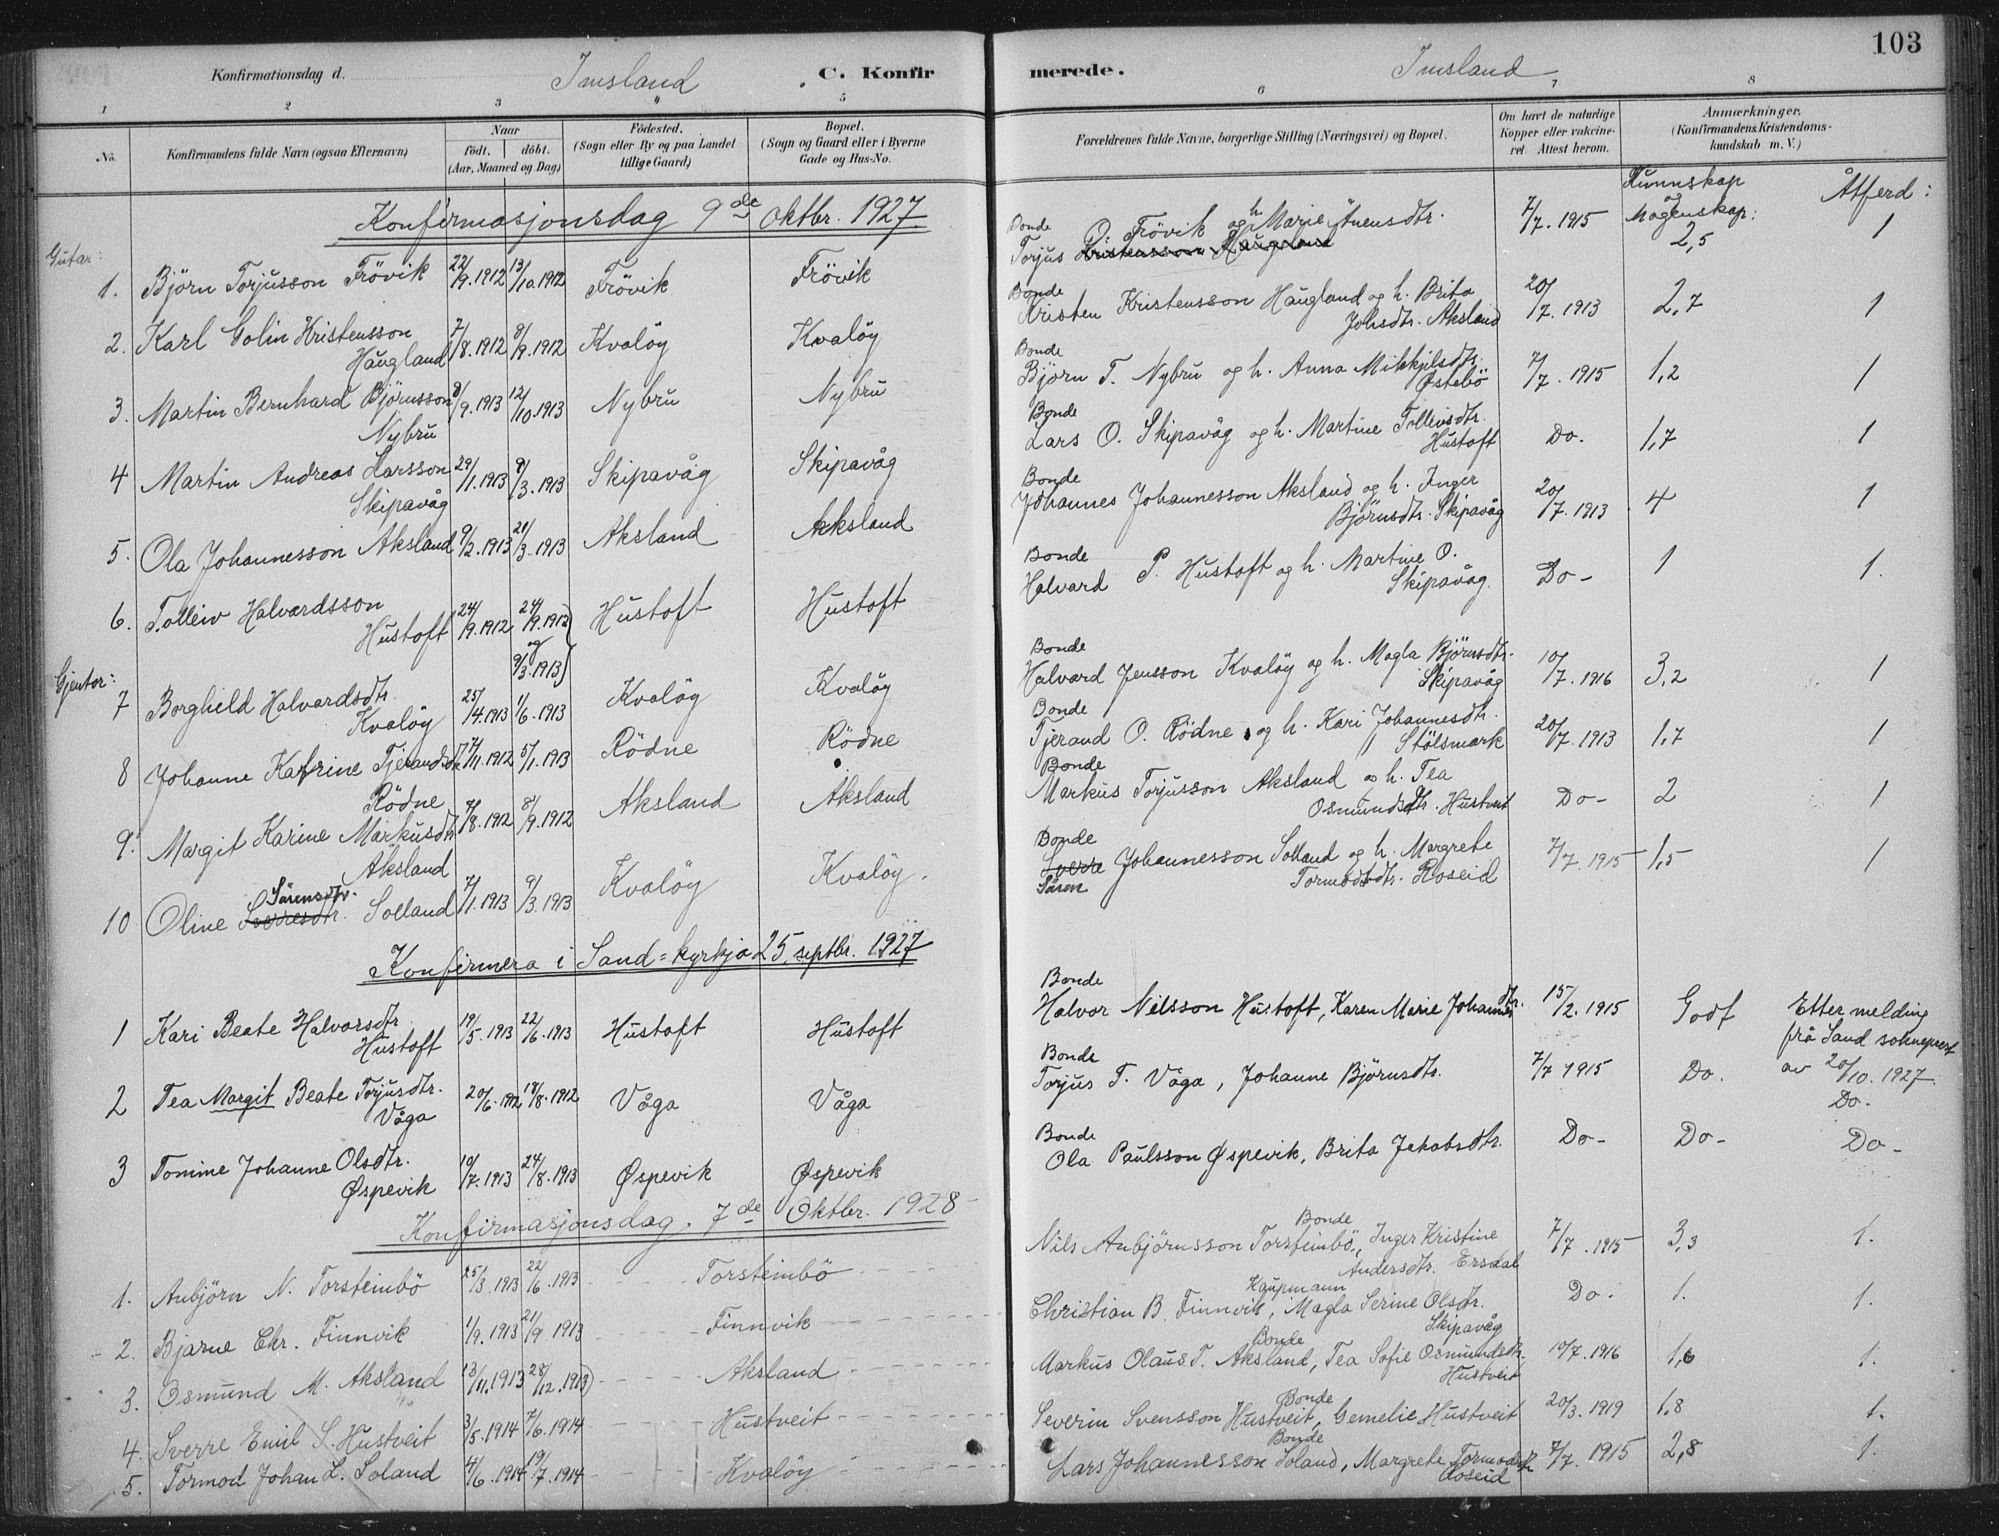 103
Konfirmationsdag d. Imsland C. Konfirmerede. Imsland
1 2 3 4 5 6 7 8
No. Konfirmandens fulde Navn (ogsaa Efternavn) Naar født. døbt. (Aar, Maaned og Dag) Fødested. (Sogn eller By og paa Landet tillige Gaard) Bopæl. (Sogn og Gaard eller i Byerne Gade og Hus-No. Forældrenes fulde Navne, borgerlige Stilling (Næringsvei) og Bopæl. Om havt de naturlige Kopper eller vakcineret. Attest herom. Anmærkninger. (Konfirmandens Kristendomskundskab m. V.)
Kunnskap og Mogenskap: Åtferd:
Konfirmasjonsdag 9de oktbr. 1927
Gutar:
1. Björn Torjusson Frövik 22/9.1912 13/10.1912 Frövik Frövik Bonde Torjus O. Frövik og h. Marie Ånensdtr. Kristensson Haugland 7/7.1915 2,5 1
2. Karl Golin Kristensson Haugland 7/8.1912 8/9.1912 Kvaløy Kvaløy Bonde Kristen Kristensson Haugland og h. Brita Johsdtr. Aksland 20/7.1913 2,7 1
3. Martin Bernhard Bjørnsson Nybru 8/9.1913 12/10.1913 Nybru Nybru Bonde Björn T. Nybru og h. Anna Mikkjelsdtr. Østebö 7/7.1915 1,2 1
4 Martin Andreas Larsson Skipavåg 29/1.1913 9/3.1913 Skipavåg Skipavåg Bonde Lars O. Skipavåg og h. Martine Tolleivsdtr. Hustoft Do. 1,7 1
5. Ola Johannesson Aksland 9/2.1913 21/3.1913 Aksland Aksland Bonde Johannes Johannesson Aksland og h. Inger Björnsdtr. Skipavåg 20/7.1913 4 1
6. Tolleiv Halvardsson Hustoft 24/9.1912 24/9.1912 og 9/3.1913 Hustoft Hustoft Bonde Halvard P. Hustoft og h. Martine O. Skipavåg. Do- 1 1.
Gjentor:
7 Borghild Halvardsdtr. Kvaløy 25/4.1913 1/6.1913 Kvaløy Kvaløy Bonde Halvard Jensson Kvaløy og h. Magla Björnsdtr. Skipavåg 10/7.1916 3,2 1
8 Johanne Katrine Tjerandsdtr Rödne 17/11.1912 5/1.1913 Rödne Rödne Bonde Tjerand O. Rödne og h. Kari Johannesdtr. Stölsmark 20/7.1913 1,7 1
9. Margit Karine Markusdtr Aksland 7/8.1912 8/9.1912 Aksland Aksland Bonde Markus Torjusson Aksland og h. Tea Osmundsdtr. Hustveit Do- 2 1
10 Oline Sverresdtr. Sørensdtr. Solland 7/1.1913 9/3.1913 Kvaløy Kvaløy. Bonde Sverre Søren Johannesson Solland og h. Margrete Tormodsdtr. Roseid 7/7.1915 1,5 1
Konfirmera i Sand=kyrkja 25. septbr. 1927
1 Kari Beate Halvorsdtr. Hustoft 19/5.1913 22/6.1913 Hustoft Hustoft Bonde Halvor Nilsson Hustoft, Karen Marie Johannesdtr. 15/2.1915 Godt Etter melding frå Sand sokneprest av 20/10.1927.
2 Tea Margit Beate Torjusdtr. Våga 20/6.1912 18/8.1912 Våga Våga Bonde Torjus T. Våga, Johanne Björnsdtr. 7/7 1915 Do. Do.
3 Tomine Johanne Olsdtr. Øspevik 10/7.1913 24/8.1913 Øspevik Øspevik Bonde Ola Paulsson Øspevik, Brita Jakobsdtr. Do- Do- Do-
Konfirmasjonsdag. 7de Oktbr. 1928
1. Anbjörn N. Torsteinbö 25/3.1913 22/6.1913 Torsteinbö Bonde Nils Anbjörnsson Torsteinbö, Inger Kristine Andersdtr. Ersdal 7/7.1915 3,3 1.
2. Bjarne Chr. Finnvik 1/9.1913 21/9.1913 Finnvik Kaupmann Christian B. Finnvik, Magla Serine Olsdtr. Skipavåg Do. 1. 1.
3. Osmund M. Aksland 13/11.1913 28/12.1913 Aksland Bonde Markus Olaus T. Aksland, Tea Sofie Osmundsdtr. Hustveit 10/7.1916 1,6 1.
4. Sverre Emil S. Hustveit 3/5.1914 7/6.1914 Hustveit Bonde Severin Svensson Hustveit, Gemelie Hustveit 20/3.1919 1.8 1.
5. Tormod Johan L. Soland 4/6.1914 19/7.1914 Kvaløy Bonde Lars Johannesson Soland, Margrete Tormodsdtr Roseid 7/7.1915 2,8 1.